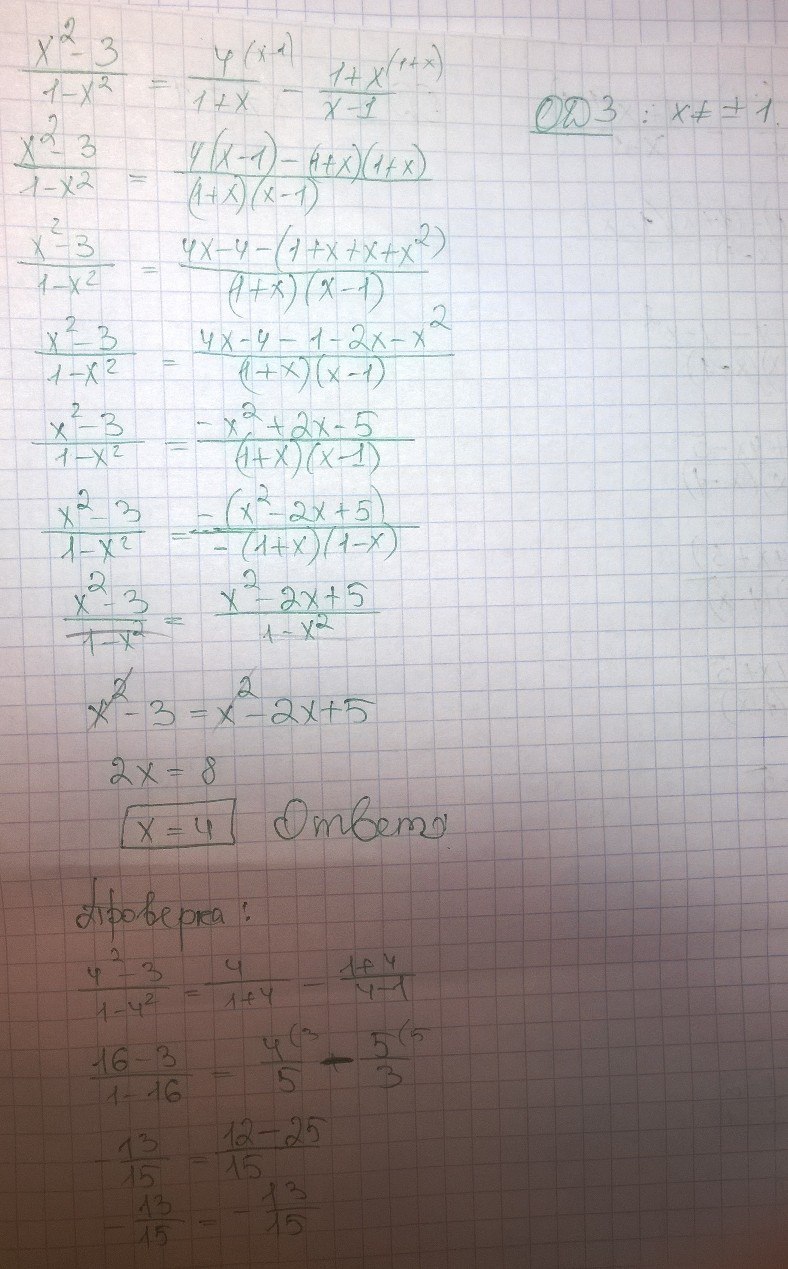 x²-3/1-x² = 4(x-1)/1+x - 1+x(1+x)/x-1
ОДЗ: x≠±1.
x²-3/1-x² = 4(x-1)-(1+x)(1+x)/(1+x)(x-1)
x²-3/1-x² = 4x-4-(1+x+x+x²)/(1+x)(x-1)
x²-3/1-x² = 4x-4-1-2x-x²/(1+x)(x-1)
x²-3/1-x² = -x²+2x-5/(1+x)(x-1)
x²-3/1-x² = -(x²-2x+5)/-(1+x)(1-x)
x²-3/1-x² = x²-2x+5/1-x²
x²-3=x²-2x+5
2x=8
x=4 Ответ
Проверка:
4²-3/1-4² = 4/1+4 - 1+4/4-1
16-3/1-16 = 4(3/5 - 5(5/3
-13/15 = 12-25/15
-13/15 = -13/15